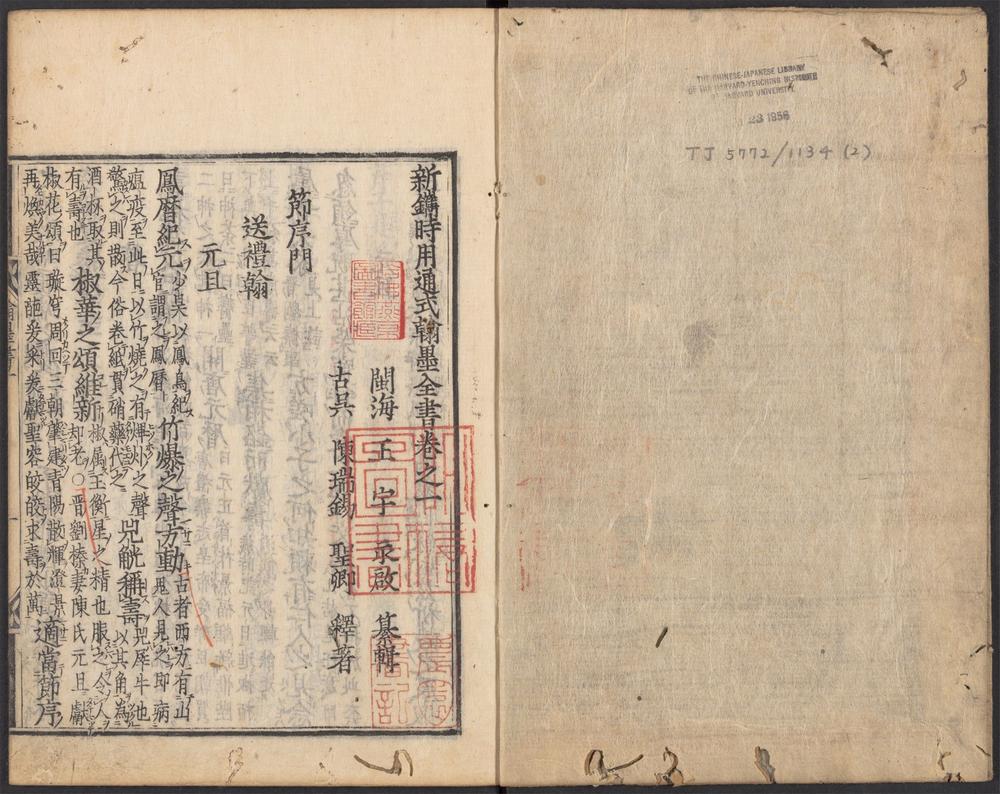 THE CHINESE-JAPANESE LIBRARY
OF THE HARVARD-YENCHING INSTITUTE
HARVARD UNIVERSITY
23 1956
TJ 5772/1134 (2)
新鐫時用通式翰墨全書卷之一
閩海 王宇 永啟 纂輯
古呉 陳瑞錫 聖卿 釋著
節序門
送禮翰
元旦
鳳暦紀元 少昊以鳳鳥紀官謂之鳳暦 竹爆之聲方動 古者西方有山𩲃人見之即病
瘟疫至此日以竹燒之有爗灼之聲驚之則散今俗卷紙貫硝藥代之 兕觥稱壽 兕犀牛也以其角為
酒杯取其有壽也 椒華之頌維新 椒属玉衡星之精也服之令人却老○晋劉榛妻陳氏元旦獻
椒花頌曰璇穹周回三朝肇建青陽散輝澄景
再煥美哉靈葩爰采爰獻聖容皎皎求壽於萬 適當節序